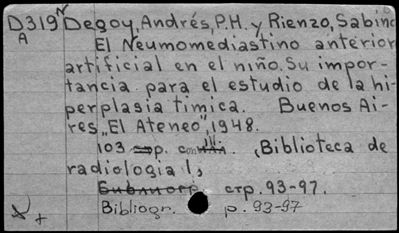 D319 Degoy, Andrés, P.H. y Rienzo, Sabino
A El Neumomediastino anterior
artificial en el niño. Su impor-
tancia para el estudio de la hi-
perplasia timica. Buenos Ai-
res, "El Ateneo", 1948.
103 p. con ill. (Biblioteca de
radiologia 1,
crp. 93-97.
Bibliogr. p. 93-97